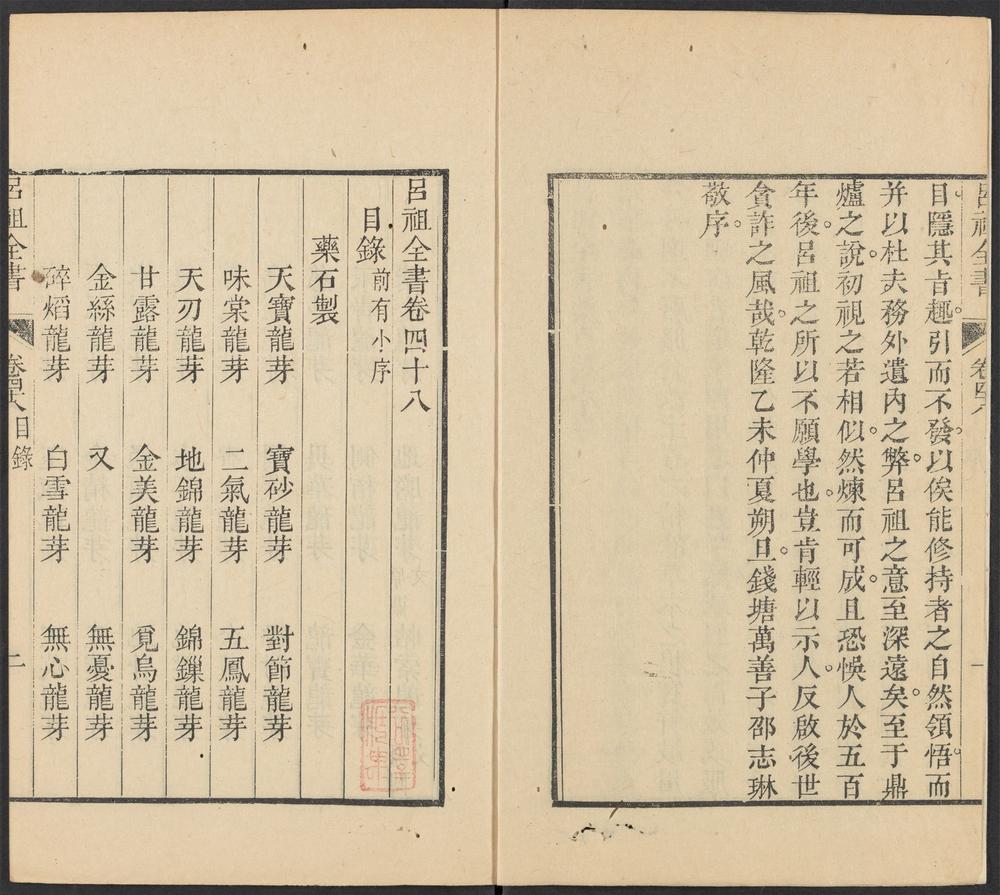 呂祖全書
卷四八
一
目隱其旨趣。引而不發。以俟能修持者之自然領悟。而
并以杜夫務外遺內之弊。呂祖之意至深遠矣。至于鼎
爐之說。初視之若相似。然煉而可成。且恐悞人於五百
年後。呂祖之所以不願學也。豈肯輕以示人。反啟後世
貪詐之風哉。乾隆乙未仲夏朔旦。錢塘萬善子邵志琳
敬序。
呂祖全書卷四十八
目錄 前有小序
藥石製
天寶龍芽 寶砂龍芽 對節龍芽
味棠龍芽 二氣龍芽 五鳳龍芽
天刃龍芽 地錦龍芽 錦鏁龍芽
甘露龍芽 金美龍芽 覓烏龍芽
金絲龍芽 又 無憂龍芽
碎熖龍芽 白雪龍芽 無心龍芽
呂祖全書
卷四八目錄
二